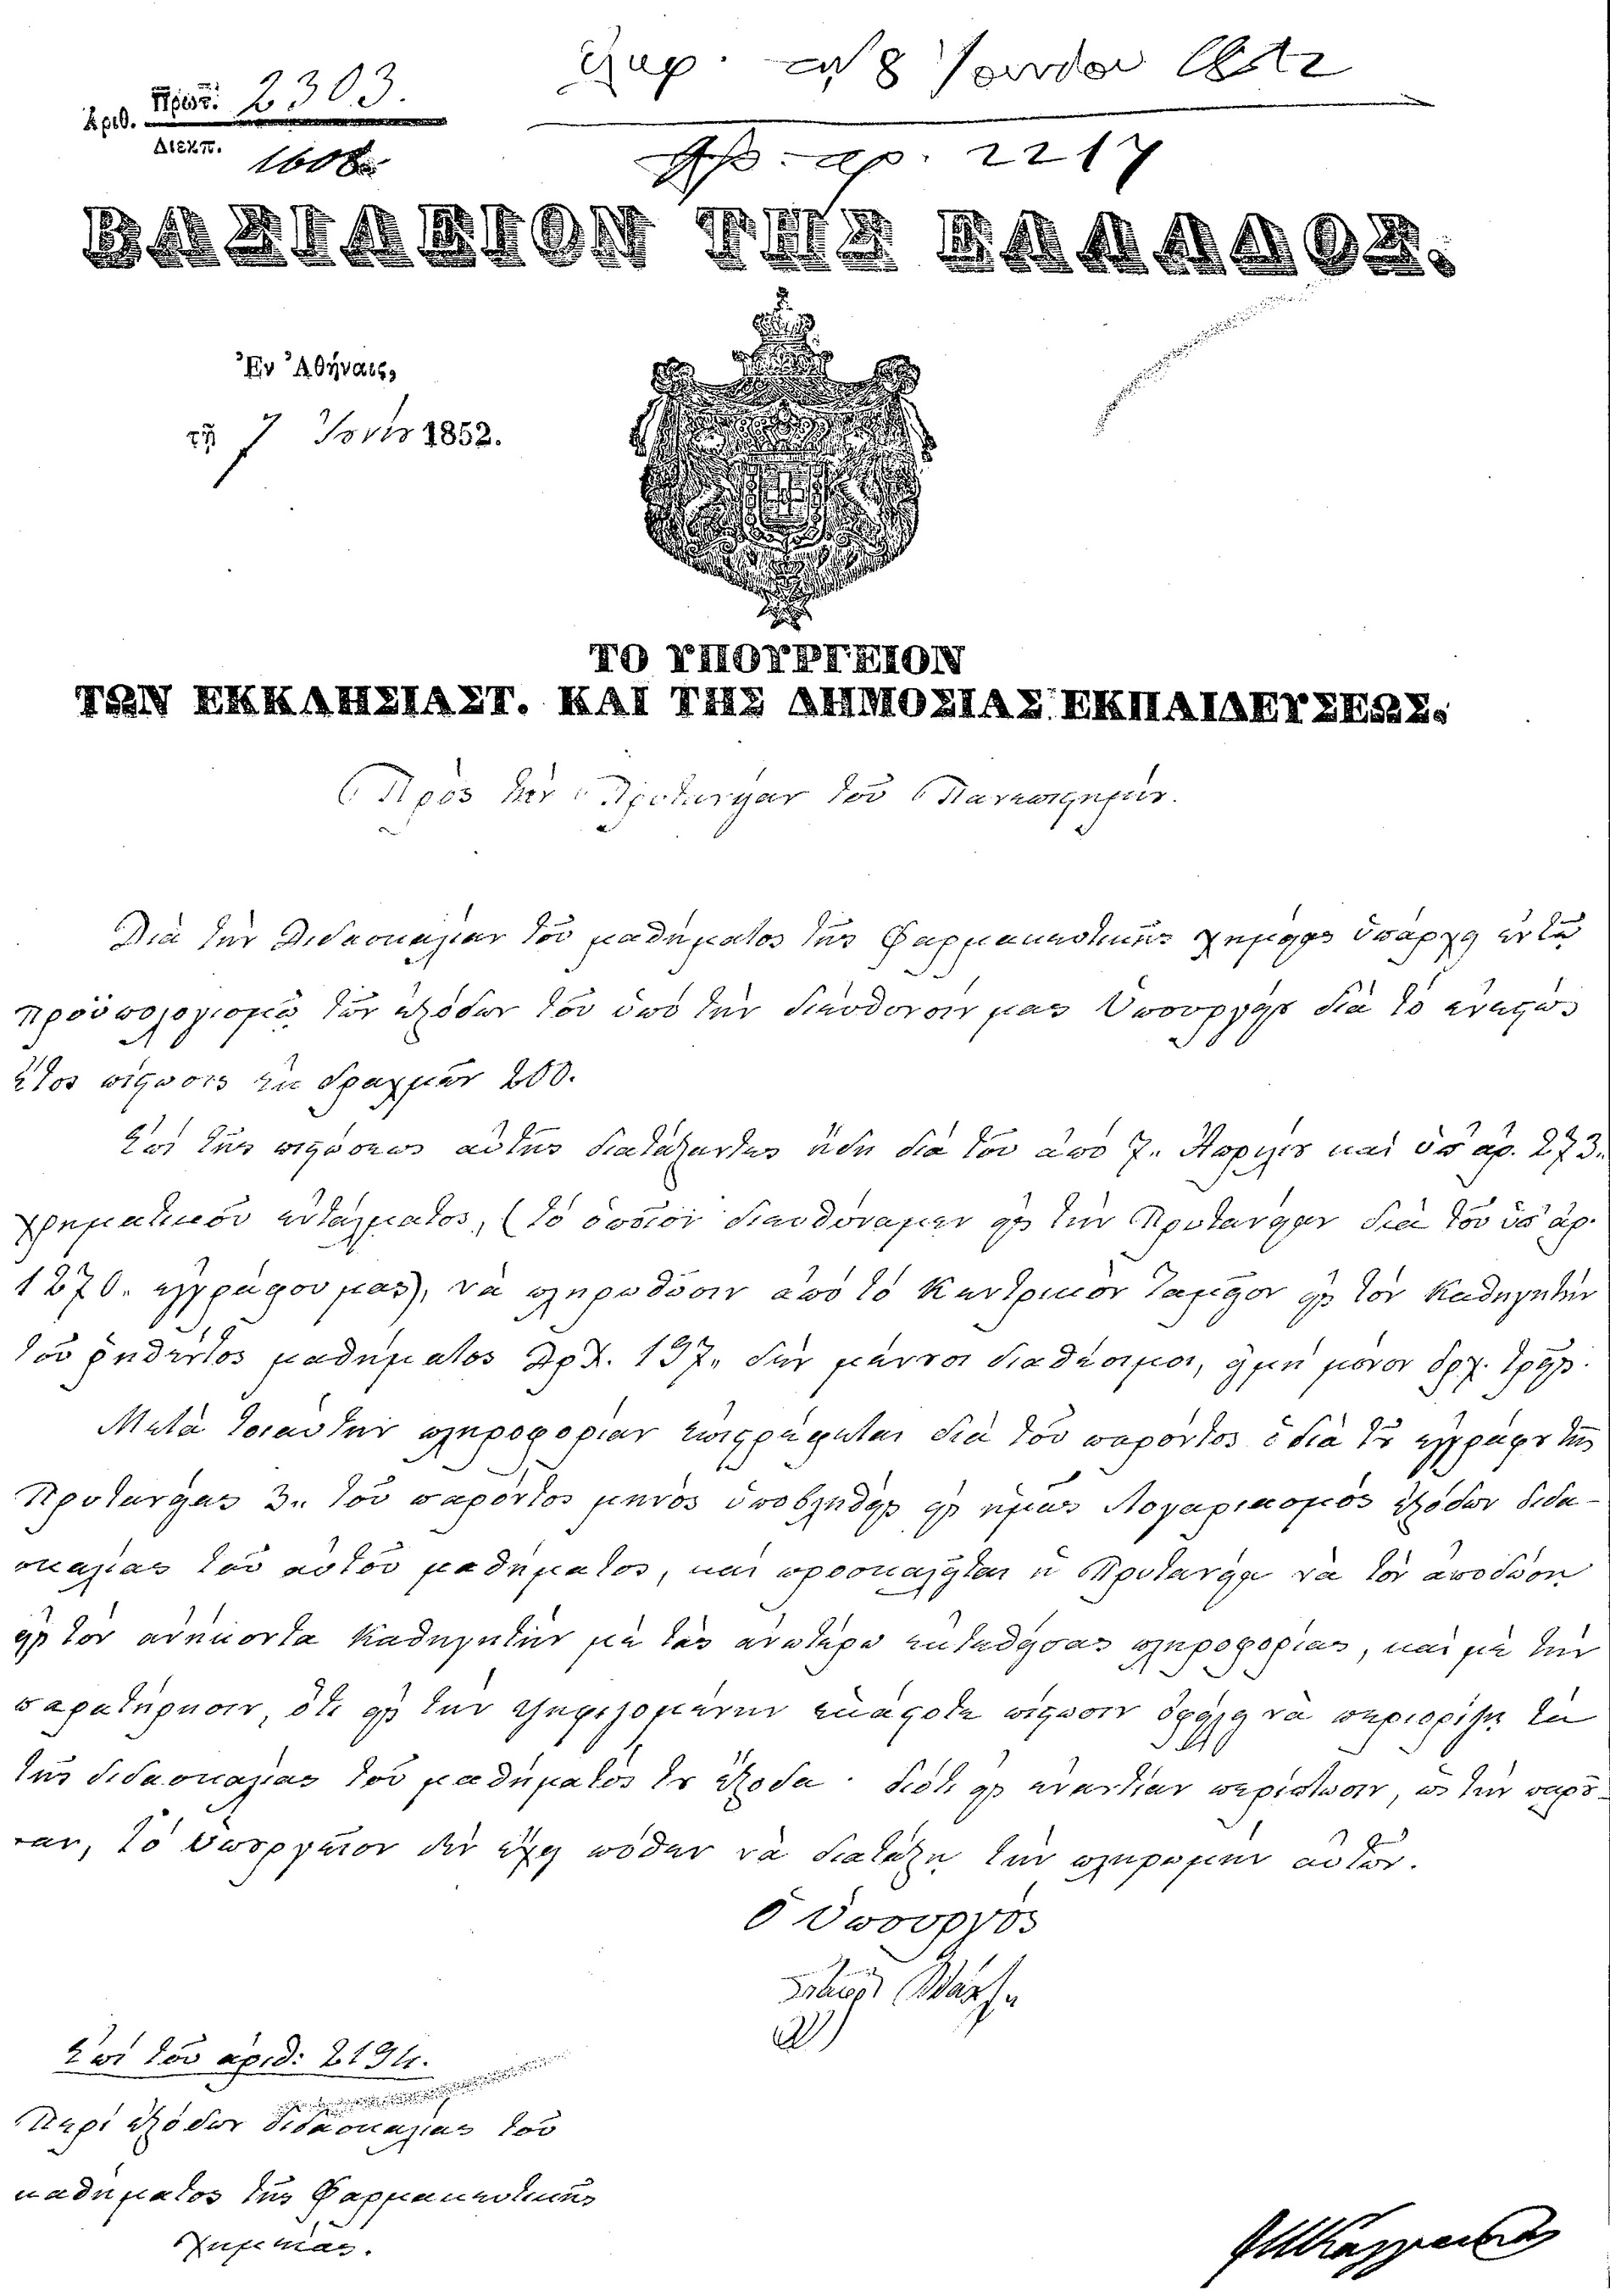 Πρωτ: 2303.
Αριθ.
Διεκπ. 1608
Παρ. τῇ 8 Ἰουνίου 1852
Πρ. αρ. 2217
ΒΑΣΙΛΕΙΟΝ ΤΗΣ ΕΛΛΑΔΟΣ.
Ἐν Ἀθήναις,
τῇ 7 Ἰουνίου 1852.
ΤΟ ΥΠΟΥΡΓΕΙΟΝ
ΤΩΝ ΕΚΚΛΗΣΙΑΣΤ. ΚΑΙ ΤΗΣ ΔΗΜΟΣΙΑΣ ΕΚΠΑΙΔΕΥΣΕΩΣ.
Πρὸς τὴν Πρυτανείαν τοῦ Πανεπιστημίου.
Διὰ τὴν διδασκαλίαν τοῦ μαθήματος τῆς Φαρμακευτικῆς χημείας ὑπάρχει ἐν τῷ
προϋπολογισμῷ τῶν ἐξόδων τοῦ ὑπὸ τὴν διεύθυνσίν μας Ὑπουργείου διὰ τὸ ἐνεστὼς
ἔτος πίστωσις ἐκ δραχμῶν 200.
Ἐπὶ τῆς πιστώσεως αὐτῆς διατάξαντες ἤδη διὰ τοῦ ἀπὸ 7. Ἀπριλίου καὶ ὑπ' ἀρ. 273.
χρηματικοῦ ἐντάλματος, (τὸ ὁποῖον διευθύναμεν εἰς τὴν Πρυτανείαν διὰ τοῦ ὑπ' ἀρ.
1270. ἐγγράφου μας), νὰ πληρωθῶσιν ἀπὸ τὸ Κεντρικὸν Ταμεῖον εἰς τὸν Καθηγητὴν
τοῦ ῥηθέντος μαθήματος Δρχ. 197. δὲν μένουσι διαθέσιμοι, εἰμὴ μόνον δρχ. τρεῖς.
Μετὰ τοιαύτην πληροφορίαν ἐπιστρέφεται διὰ τοῦ παρόντος ὁ διὰ τοῦ ἐγγράφου τῆς
Πρυτανείας 3. τοῦ παρόντος μηνὸς ὑποβληθεὶς εἰς ἡμᾶς Λογαριασμὸς ἐξόδων διδα-
σκαλίας τοῦ αὐτοῦ μαθήματος, καὶ προσκαλεῖται ἡ Πρυτανεία νὰ τὸν ἀποδώσῃ
εἰς τὸν ἀνήκοντα Καθηγητὴν μὲ τὰς ἀνωτέρω ἐκτεθείσας πληροφορίας, καὶ μὲ τὴν
παρατήρησιν, ὅτι εἰς τὴν ψηφιζομένην ἑκάστοτε πίστωσιν ὀφείλει νὰ περιορίζῃ τὰ
τῆς διδασκαλίας τοῦ μαθήματός του ἔξοδα· διότι εἰς ἐναντίαν περίπτωσιν, ὡς τὴν παροῦ-
σαν, τὸ Ὑπουργεῖον δὲν ἔχει πόθεν νὰ διατάξῃ τὴν πληρωμὴν αὐτῶν.
Ὁ Ὑπουργὸς
Σταῦρος Βλάχος
Ἐπὶ τοῦ ἀριθ: 2194.
Περὶ ἐξόδων διδασκαλίας τοῦ
μαθήματος τῆς Φαρμακευτικῆς
Χημείας.